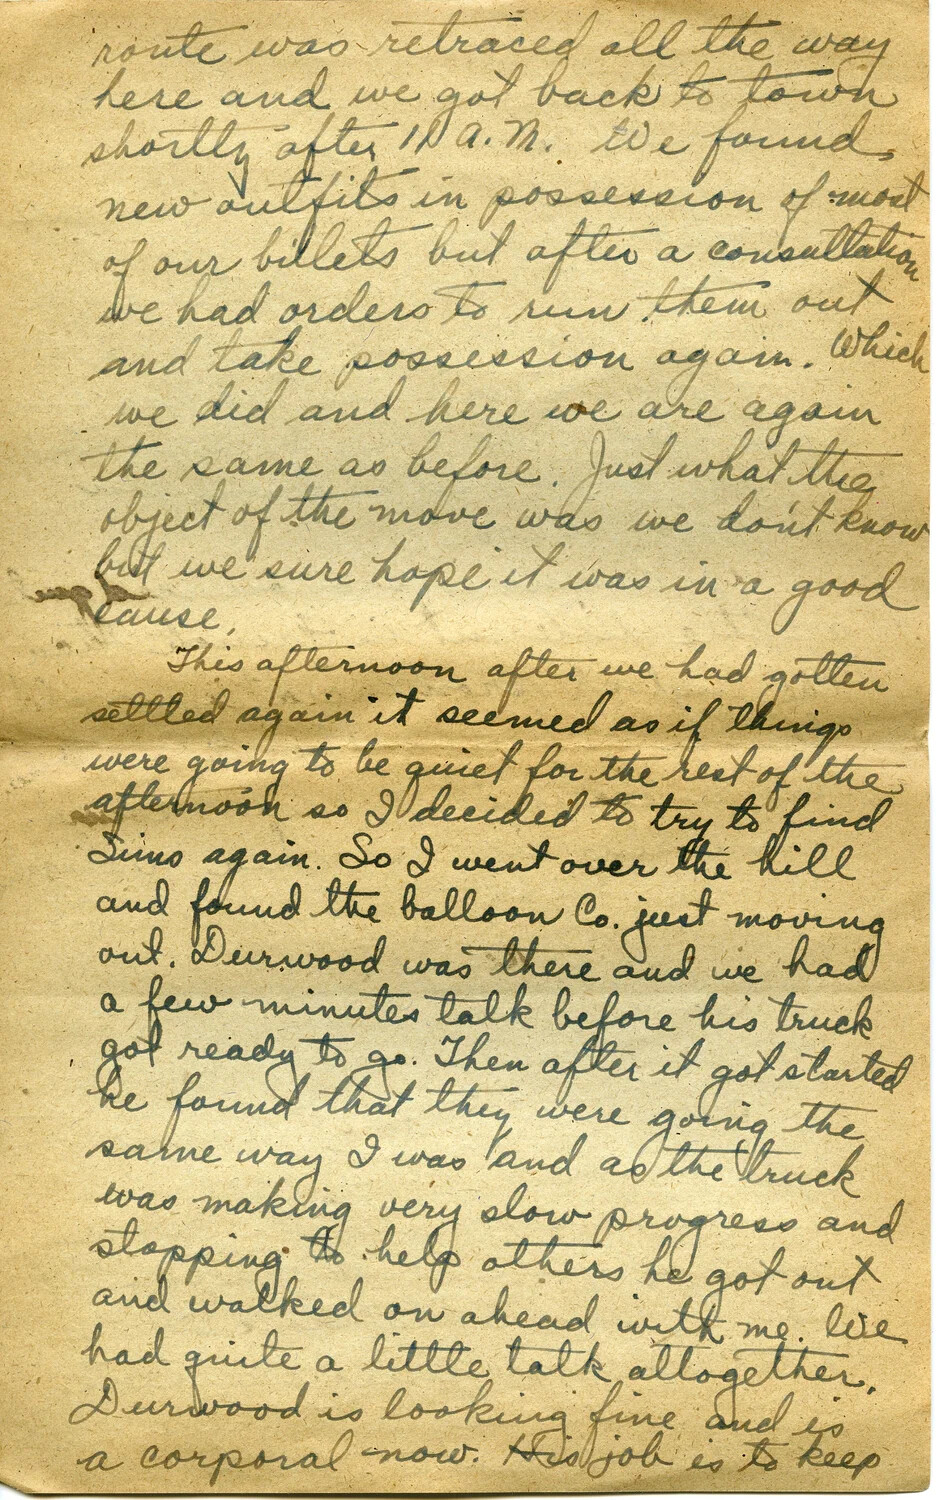 route was retraced all the way
here and we got back to town
shortly after 11 A.M. We found
new outfits in possession of most
of our billets but after a consultation
we had orders to run them out
and take possession again. Which
we did and here we are again
the same as before. Just what the
object of the move was we don't know
but we sure hope it was in a good
cause.
This afternoon after we had gotten
settled again it seemed as if things
were going to be quiet for the rest of the
afternoon so I decided to try to find
Sims again. So I went over the hill
and found the balloon Co. just moving
out. Durwood was there and we had
a few minutes talk before his truck
got ready to go. Then after it got started
he found that they were going the
same way I was and as the truck
was making very slow progress and
stopping to help others he got out
and walked on ahead with me. We
had quite a little talk altogether.
Durwood is looking fine and is
a corporal now. His job is to keep